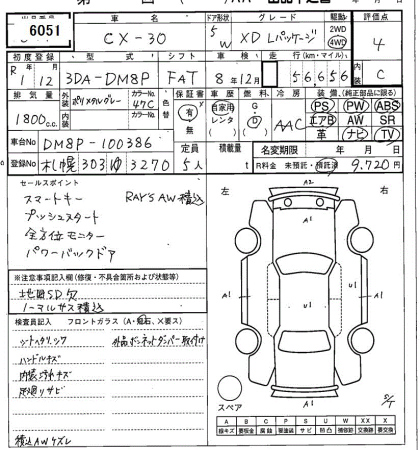 6051
車名 ドア形状 グレード 駆動 評価点
CX-30 5 W XD Lパッケージ 2WD 4WD 4
初度登録 型式 シフト 車検 走行(km・マイル) 内装
R1 12 3DA-DM8P FAT 8年12月 56,656 C
排気量 外装 カラーNo. 色替 保証書 車歴 燃料 冷房 装備(純正部品に限る)
1800c.c. ポリメタルグレー 47C 有 無 自家用 レンタ G・D AAC PS PW ABS
エアB AW SR
革 ナビ TV
車台No. DM8P-100386 定員 積載量 名変期限 年 月 日
登録No. 札幌303ゆ3270 5人 R料金 未預託・預託済 9,720円
セールスポイント
スマートキー RAYS AW積込
プッシュスタート
全方位モニター
パワーバックドア
※注意事項記入欄(修復・不具合箇所および状態等)
地図SD欠
ノーマルサス積込
検査員記入 フロントガラス(A・飛石、X要ス)
シートハタリック 外品ボンネットダンパー取付け
ハンドルキズ
内装汚れキズ
足廻りサビ
積込AWキズレ
左 右
A2
A1
A1 U1 U1 A1
A1
S/T
スペア
A B C P S U W X XX
線キズ 要板金 腐蝕 要塗装 サビ 凹凸 補修跡 交換跡 要交換